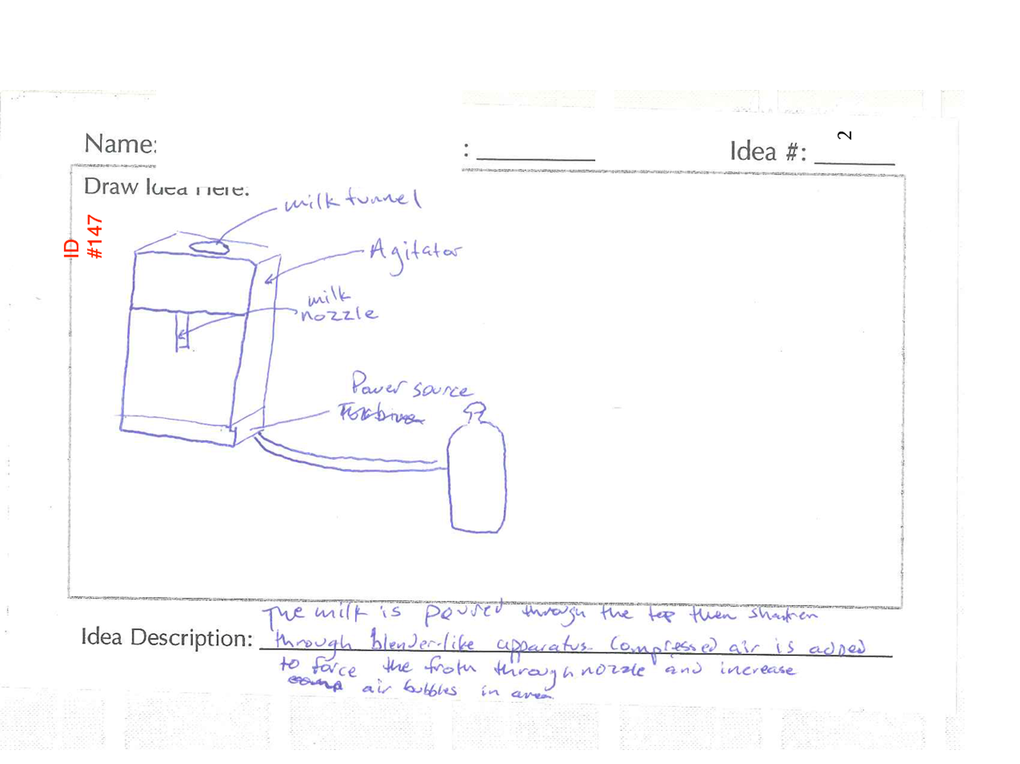 Name: : Idea #: 2
Draw Idea Here:
ID
#147
milk tunnel
Agitator
milk
nozzle
Power source
The milk is poured through the top then shaken
Idea Description: through blender-like apparatus. Compressed air is added
to force the froth through nozzle and increase
air bubbles in area